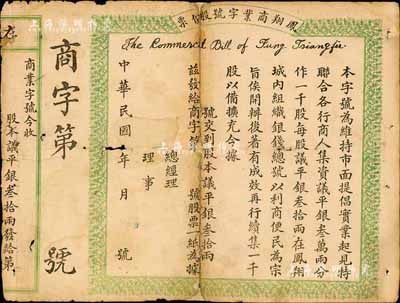 鳳翔商業字號股份票
The Commercil Bill of Fung Tsiangfu
本字號為維持市面提倡實業起見特
聯合各行商人集資議平銀叁萬兩分
作一千股每股議平銀叁拾兩在鳳翔
城內組織銀錢總號以利商便民為宗
旨俟開辦後著有成效再行續集一千
股以備擴充今據
號交到股本議平銀叁拾兩
茲發給商字第 號股票一紙為據
總經理
理事
中華民國 年 月 號
商字第 號
存
商業字號今收
股本議平銀叁拾兩發給第